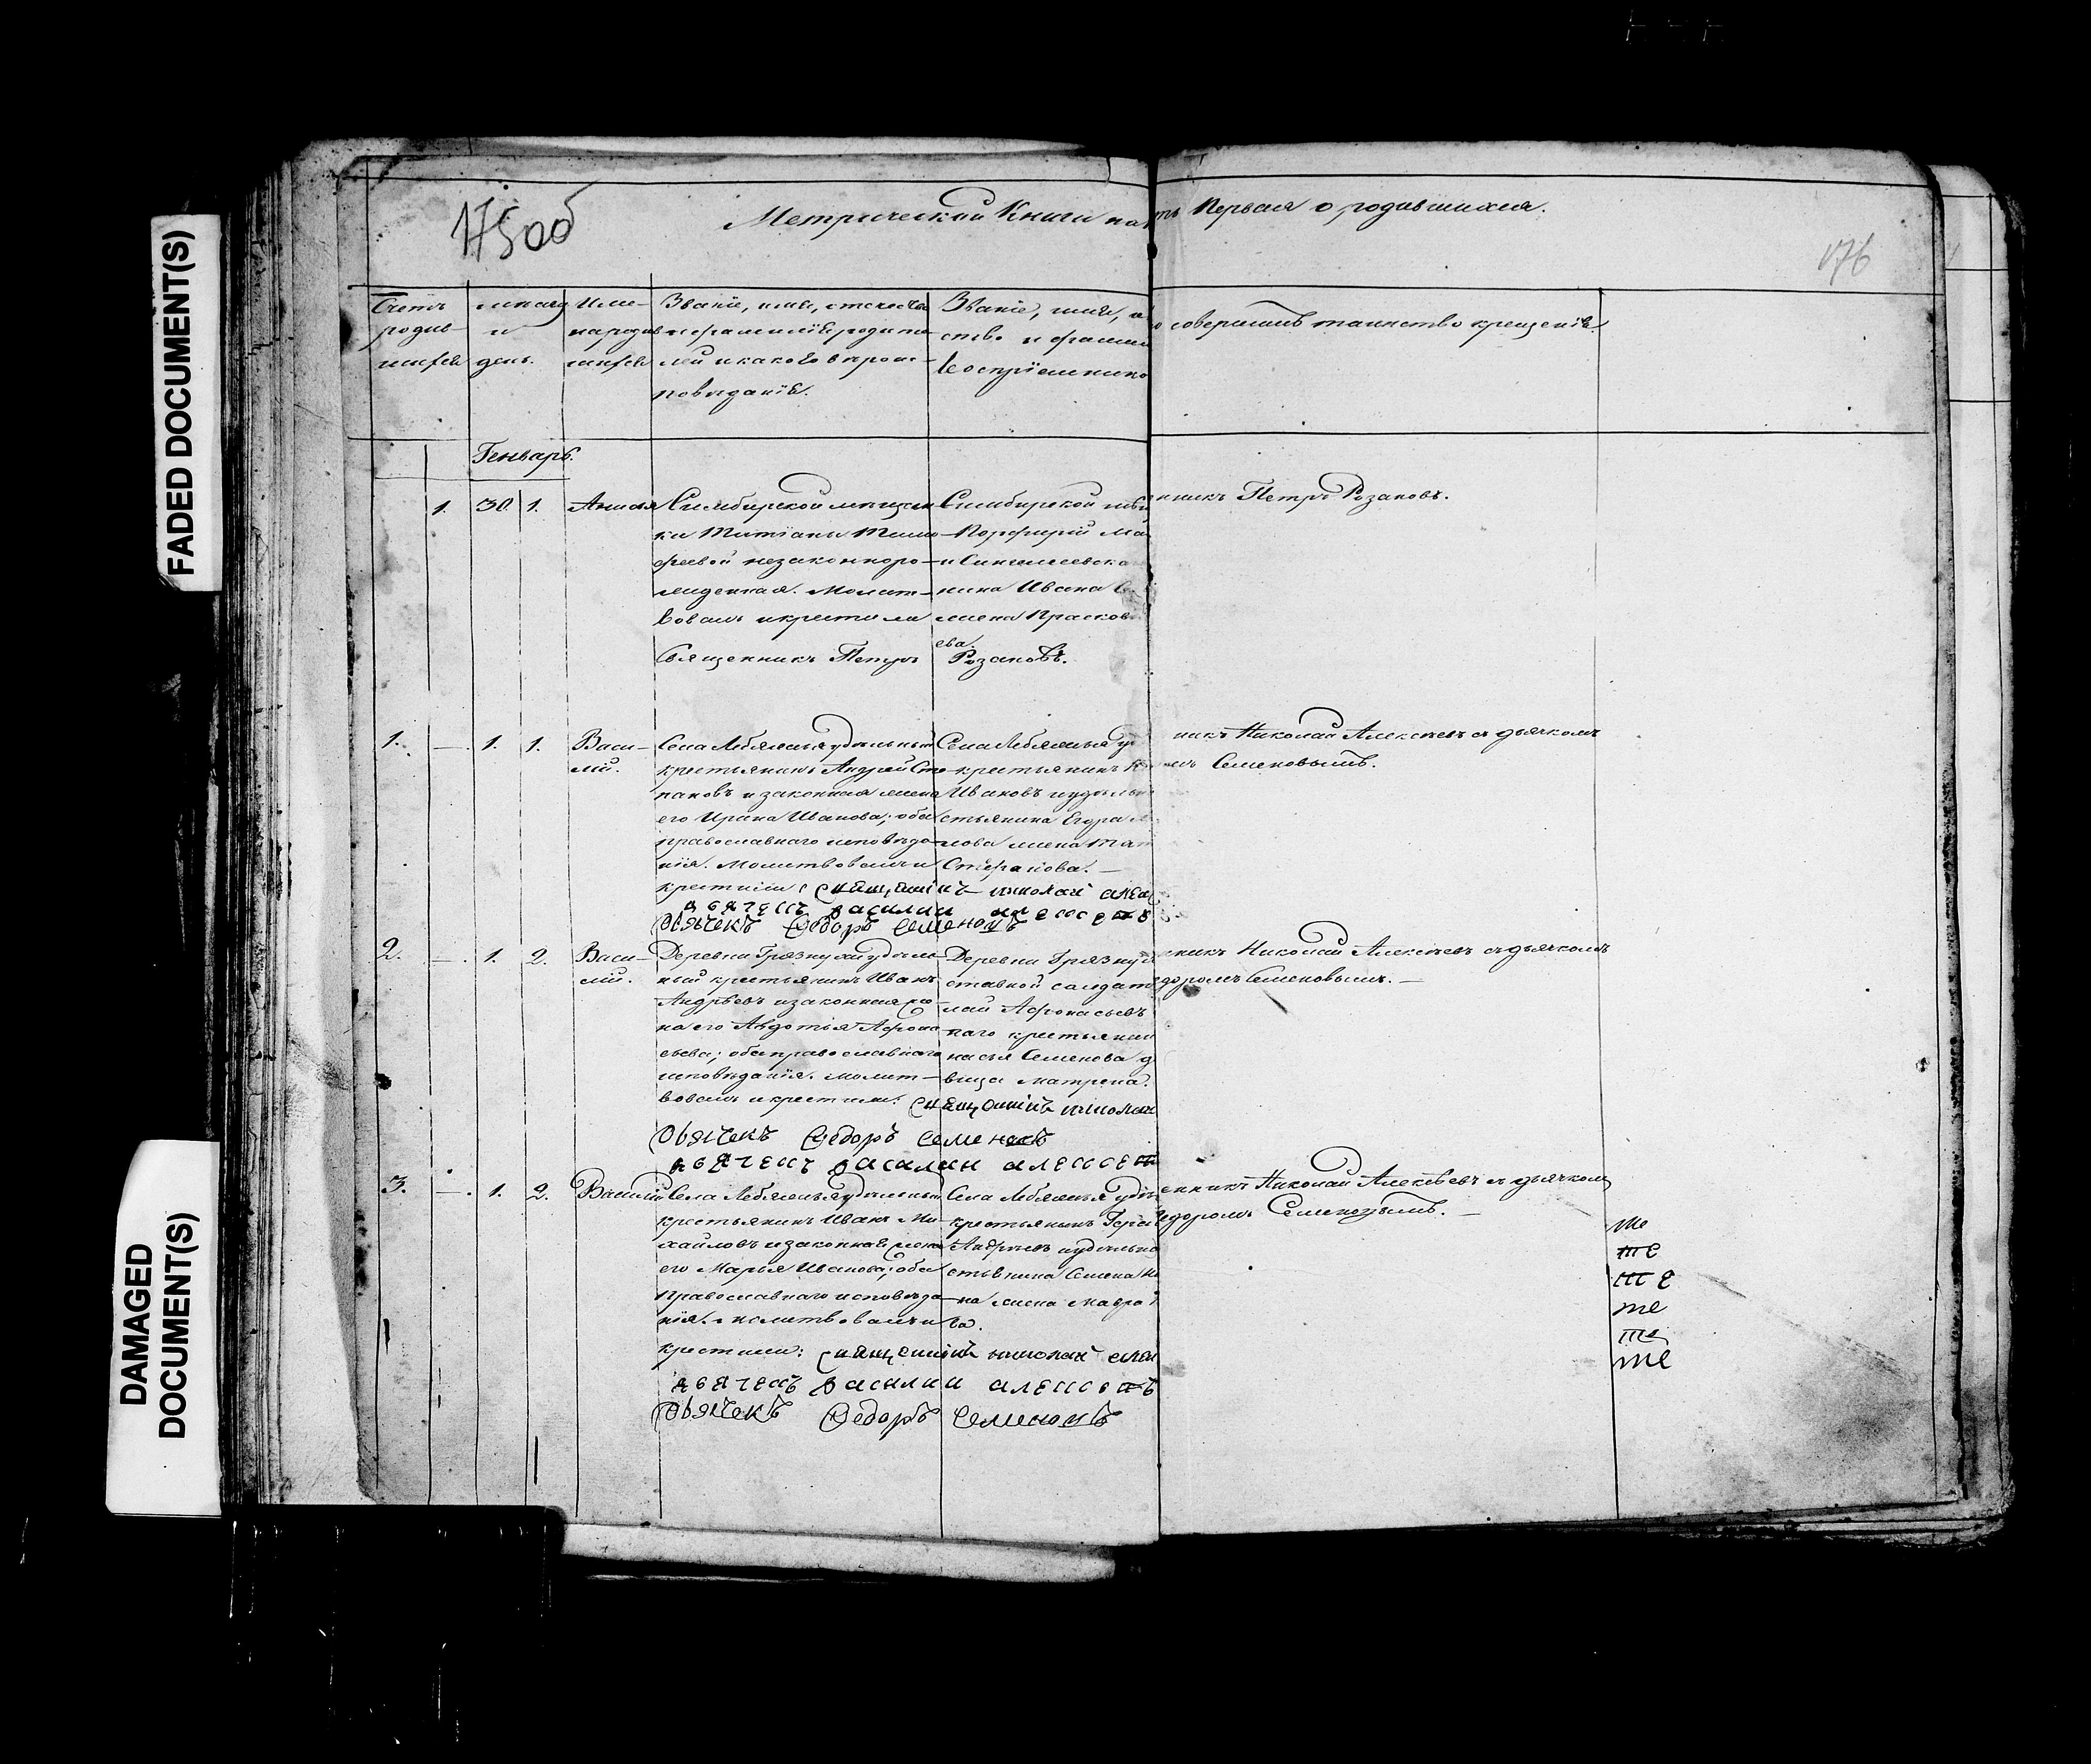 FADED DOCUMENT(S)
DAMAGED DOCUMENT(S)
175об
Метрической Книги часть Первая о родившихся.
176
Счетъ родив- шихся
мѣсяцъ и день.
Име- на родив- шихся
Званіе, имя, отчество
и фамилія родите-
лей и какого вѣрои-
повѣданія.
Званіе, имя, о
ство и фамил
воспріемнико
о совершалъ таинство крещенія.
Генварь.
1. 30. 1. Анисія
Симбирской мѣщан
ки Татіаны Тимо-
феевой незаконноро-
жденная. Молит-
вовалъ и крестилъ
Священникъ Петръ Розановъ.
Симбирской
Порфирій
нина Ивана
жена Прасков
ева
нникъ Петръ Розановъ.
1. — . 1. 1. Васи-
лій.
Села Лебяжья удѣльный
крестьянинъ Андрей Сте-
пановъ и законная жена
его Ирина Иванова; оба
православнаго исповѣда-
нія. Молитвовалъ и
крестилъ: священникъ николай алек
дьячекъ василий алексеев
Дьячекъ Федоръ Семеновъ
Села Лебяжья уд
крестьянинъ
Ивановъ и удѣльн
стьянина Егора
нова жена
Степанова. —
никъ Николай Алексѣевъ съ дьячкомъ
Семеновымъ.
2. — . 1. 2. Васи-
лій.
Деревни Грязнухи удѣль-
ный крестьянинъ Иванъ
Андрѣевъ и законная же-
на его Авдотья Афона-
сьева; оба православнаго
исповѣданія. Молит-
вовалъ и крестилъ: священникъ николай
Дьячекъ Федоръ Семеновъ
дьячекъ василий алексеев
Деревни Грязну
ставной солдат
лай Афонасьевъ
наго крестьянин
насья Семенова д
вица Матрена.
нникъ Николай Алексѣевъ съ дьячкомъ
едоромъ Семеновымъ. —
3. — . 1. 2. Василій
Села Лебяжья удѣльный
крестьянинъ Иванъ Ми-
хайловъ и законная жена
его Марья Иванова; оба
православнаго исповѣда-
нія. Молитвовалъ и
крестилъ: священникъ николай алек
дьячекъ василий алексеевъ
Дьячекъ Федоръ Семеновъ
Села Лебяжья удѣ
крестьянинъ Гера
Андрѣевъ и удѣльна
стьянина Семена
на жена Мавра
ва.
енникъ Николай Алексѣевъ съ дьячкомъ
едоромъ Семеновымъ. —
те
те
те
те
те
те